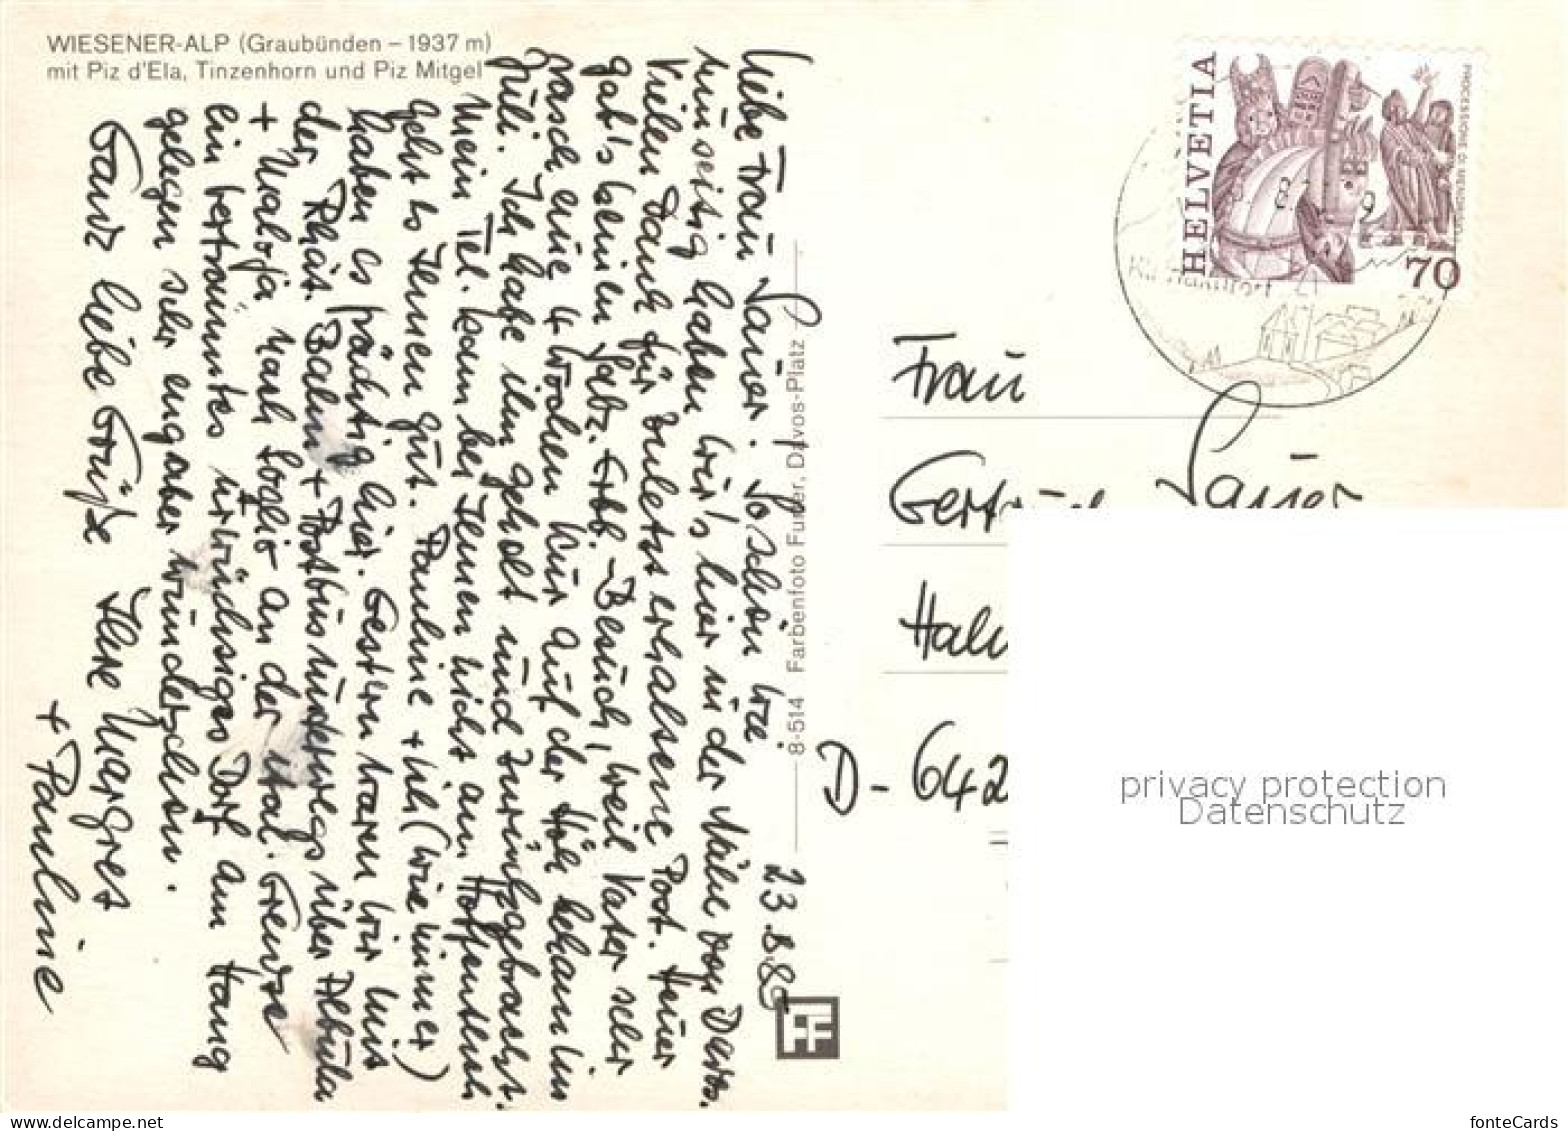 WIESENER-ALP (Graubünden – 1937 m)
mit Piz d'Ela, Tinzenhorn und Piz Mitgel
23.8.85
Liebe Frau Sauer. So schön wie
haben wir's hier in der Nähe von Davos.
Vielen Dank für zuletzt erhaltene Post. Heuer
gab's keinen Besuch, weil Vater sehr
rasch eine 4 Wochen Kur auf der Höh bekam im
Juli. Ich habe ihn geholt und zurückgebracht.
Mein Tel. kam bei Ihnen nicht an. Hoffentlich
geht es Ihnen gut. Pauline + ich (wie immer)
haben es prächtig hier. Gestern waren wir mit
der Rhät. Bahn + Postbus unterwegs über Albula
+ Maloja nach Soglio an der ital. Grenze
ein verträumtes urwüchsiges Dorf am Hang
gelegen sehr eng aber wunderschön.
Ganz liebe Grüße Ihre Margret
+ Pauline
8-514 Farbenfoto Furter, Davos-Platz
HELVETIA
70
Frau
Gertrud Sauer
D- 642
privacy protection
Datenschutz
www.delcampe.net
fonteCards